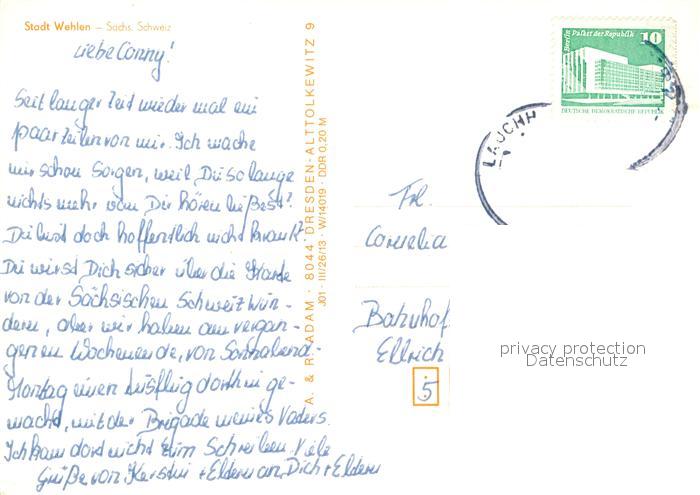 Stadt Wehlen – Sächs. Schweiz
Liebe Conny!
Seit langer Zeit wieder mal ein
paar Zeilen von mir. Ich mache
mir schon Sorgen, weil Du so lange
nichts mehr von Dir hören ließest!
Du bist doch hoffentlich nicht krank?
Du wirst Dich sicher über die Karte
von der Sächsischen Schweiz wun-
dern, aber wir haben am vergan-
genen Wochenende, von Sonnabend-
Montag einen Ausflug dorthin ge-
macht, mit der Brigade meines Vaters.
Ich kam dort nicht zum Schreiben. Viele
Grüße von Kerstin + Eltern an Dich + Eltern
A. & R. ADAM · 8044 DRESDEN-ALTTOLKEWITZ 9
J01 · III/26/13 · W/14019 · DDR 0,20 M
Berlin Palast der Republik 10
DEUTSCHE DEMOKRATISCHE REPUBLIK
LAUCHH
Frl.
Cornelia
Bahnhof
Ellrich
5
privacy protection
Datenschutz